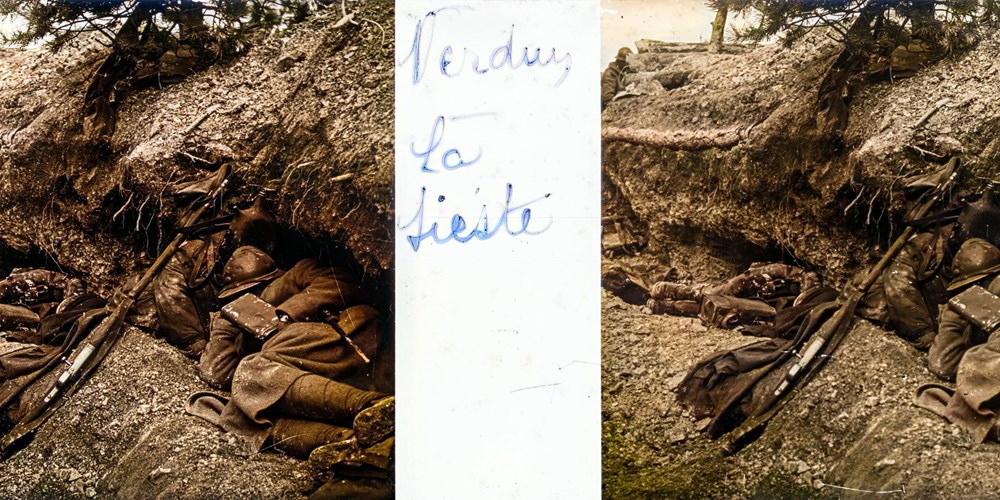 Verdun
La
sieste